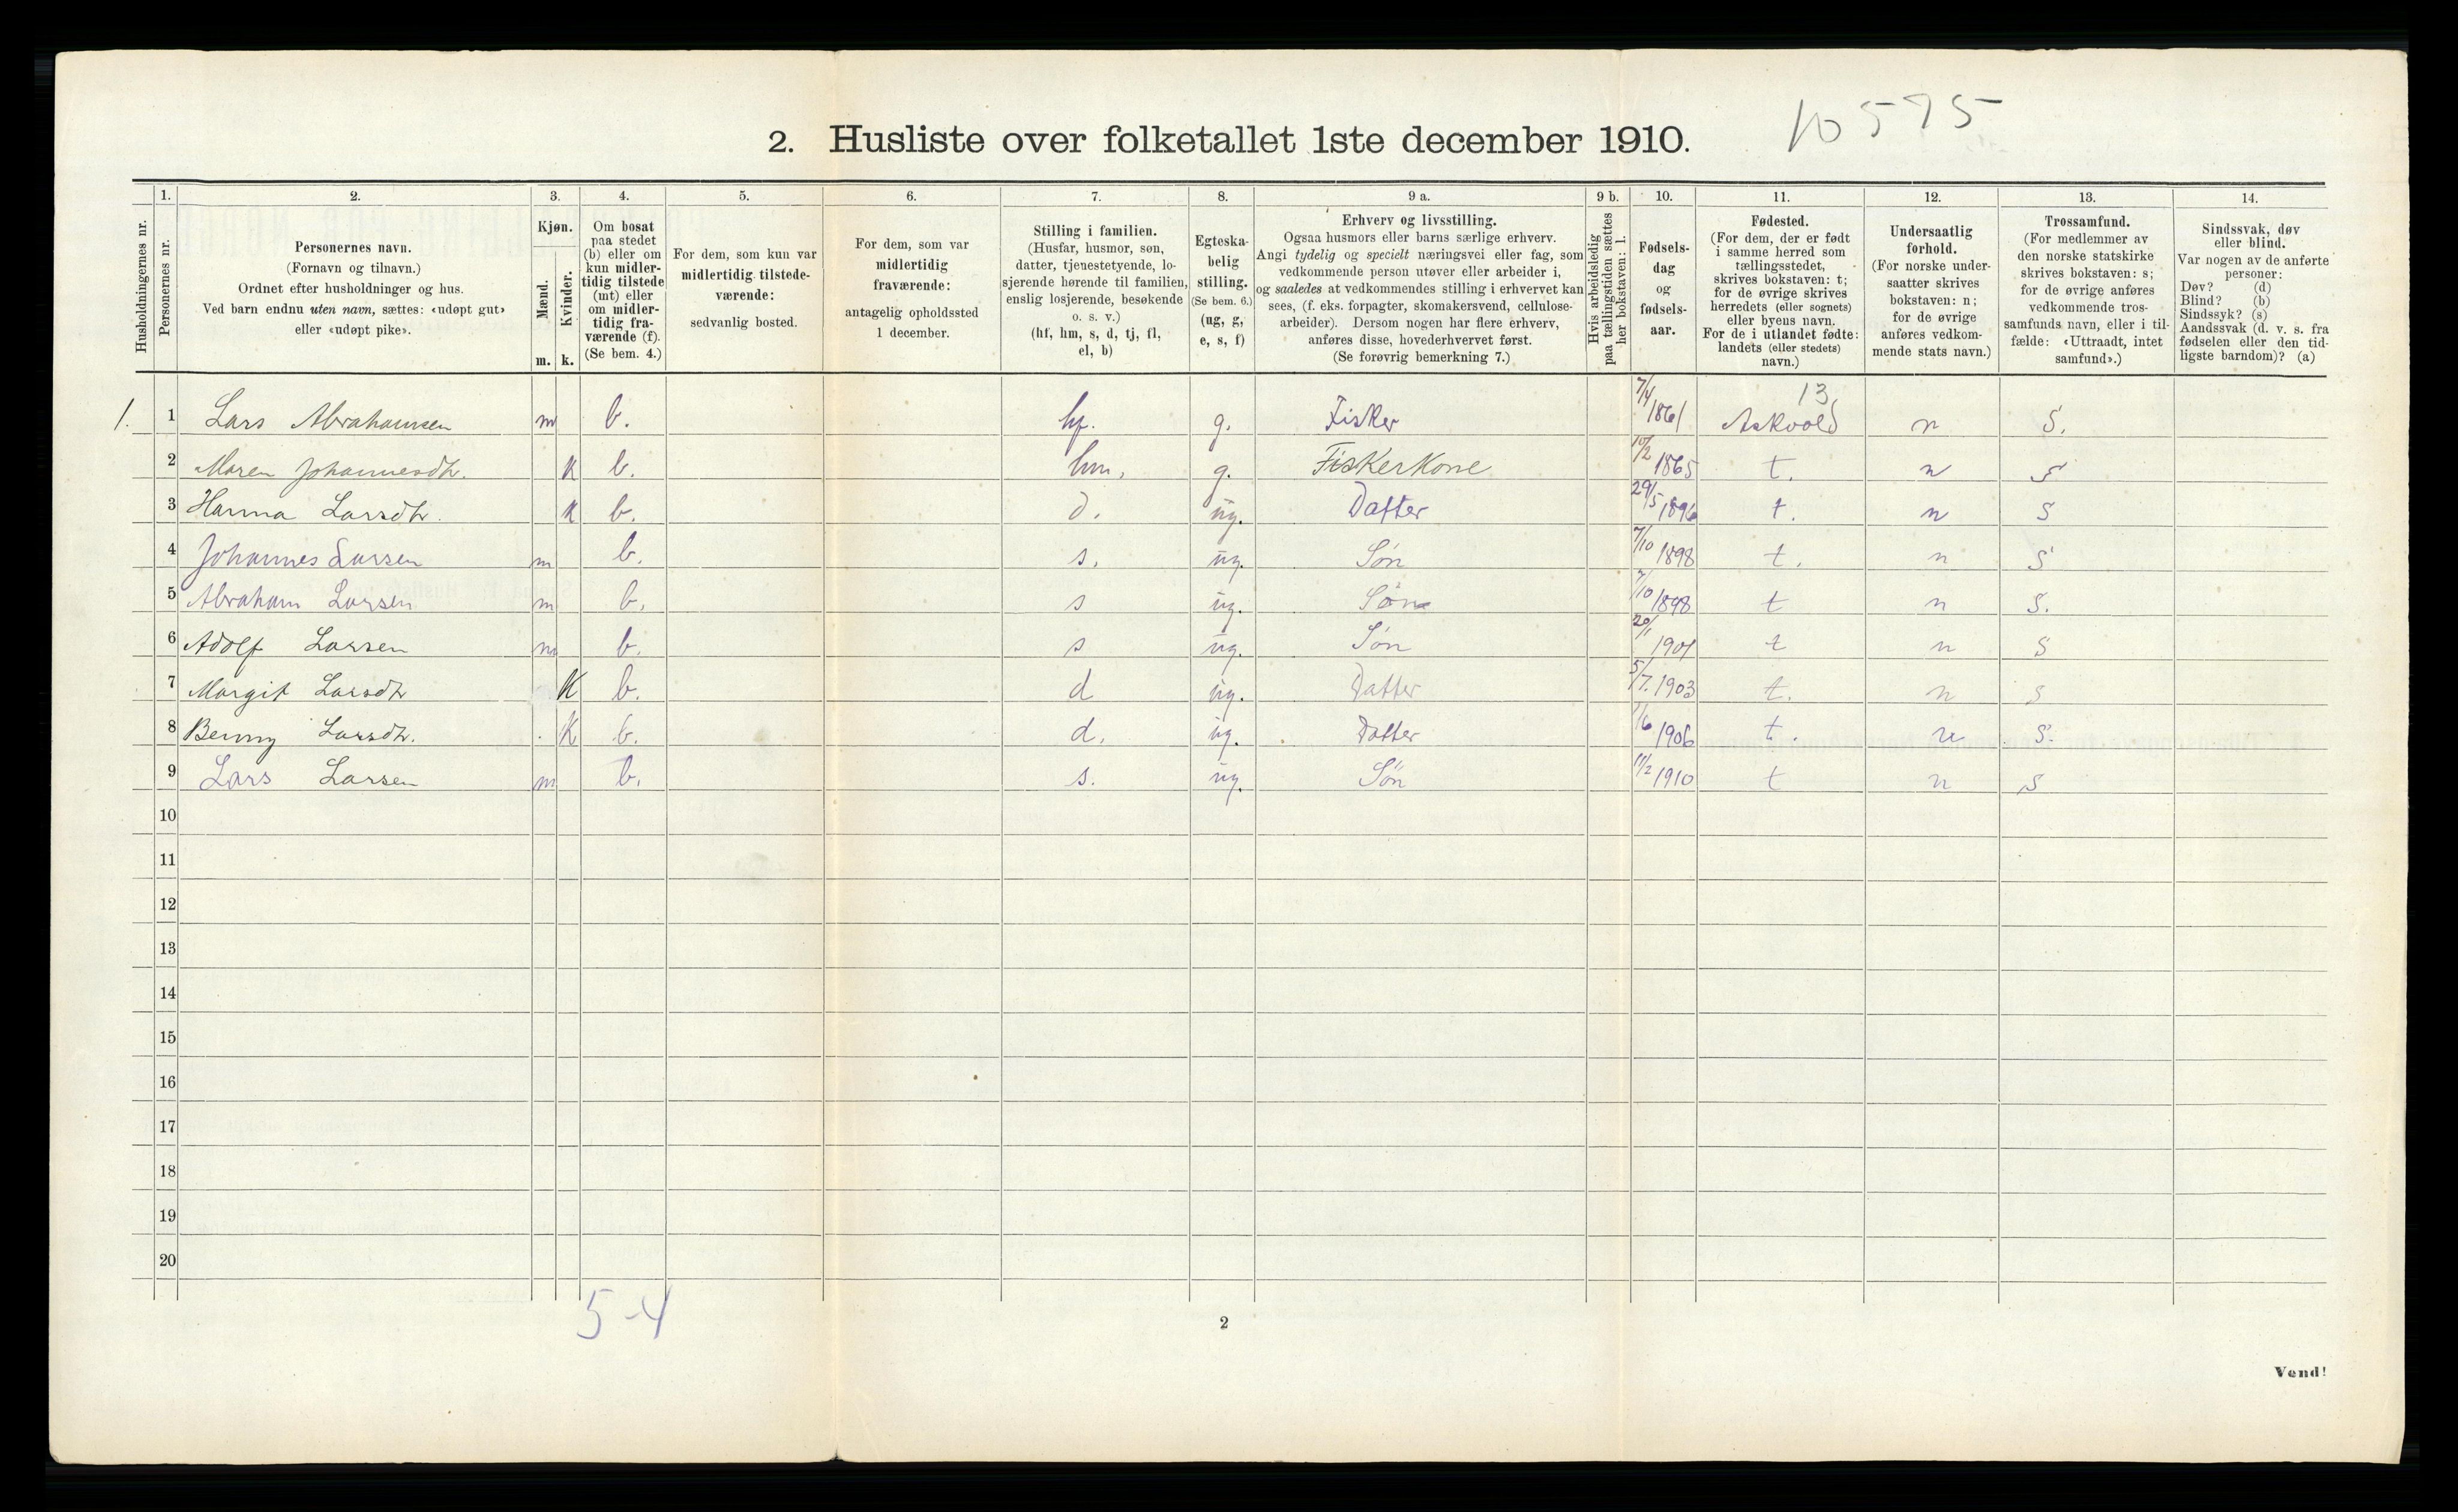 10575
2. Husliste over folketallet 1ste december 1910.
Husholdningernes nr.
1. Personernes nr.
2. Personernes navn. (Fornavn og tilnavn.) Ordnet efter husholdninger og hus. Ved barn endnu uten navn, sættes: «udøpt gut» eller «udøpt pike».
3. Kjøn. Mænd. m. Kvinder. k.
4. Om bosat paa stedet (b) eller om kun midlertidig tilstede (mt) eller om midlertidig fraværende (f). (Se bem. 4.)
5. For dem, som kun var midlertidig tilstedeværende: sedvanlig bosted.
6. For dem, som var midlertidig fraværende: antagelig opholdssted 1 december.
7. Stilling i familien. (Husfar, husmor, søn, datter, tjenestetyende, losjerende hørende til familien, enslig losjerende, besøkende o. s. v.) (hf, hm, s, d, tj, fl, el, b)
8. Egteskabelig stilling. (Se bem. 6.) (ug, g, e, s, f)
9 a. Erhverv og livsstilling. Ogsaa husmors eller barns særlige erhverv. Angi tydelig og specielt næringsvei eller fag, som vedkommende person utøver eller arbeider i, og saaledes at vedkommendes stilling i erhvervet kan sees, (f. eks. forpagter, skomakersvend, cellulosearbeider). Dersom nogen har flere erhverv, anføres disse, hovederhvervet først. (Se forøvrig bemerkning 7.)
9 b. Hvis arbeidsledig paa tællingstiden sættes her bokstaven: l.
10. Fødselsdag og fødselsaar.
11. Fødested. (For dem, der er født i samme herred som tællingsstedet, skrives bokstaven: t; for de øvrige skrives herredets (eller sognets) eller byens navn. For de i utlandet fødte: landets (eller stedets) navn.)
12. Undersaatlig forhold. (For norske undersaatter skrives bokstaven: n; for de øvrige anføres vedkommende stats navn.)
13. Trossamfund. (For medlemmer av den norske statskirke skrives bokstaven: s; for de øvrige anføres vedkommende trossamfunds navn, eller i tilfælde: «Uttraadt, intet samfund».)
14. Sindssvak, døv eller blind. Var nogen av de anførte personer: Døv? (d) Blind? (b) Sindssyk? (s) Aandssvak (d. v. s. fra fødselen eller den tidligste barndom)? (a)
13,
1. 1 Lars Abrahamsen m b. hf. g. Fisker 7/4 1861 Askvold n S.
2 Maren Johannesdtr. k b. hm, g. Fiskerkone 10/2 1865 t. n S
3 Hanna Larsdtr. k b. d. ug. Datter 29/5 1896 t. n S
4 Johannes Larsen m b. s. ug. Søn 7/10 1898 t. n S
5 Abraham Larsen m b. s ug. Søn 7/10 1898 t n S.
6 Adolf Larsen m b. s ug. Søn 20/1 1901 t n S
7 Margit Larsdtr K b. d ug. Datter 5/7. 1903 t. n S
8 Benny Larsdtr. K b. d. ug. Datter 1/6 1906 t. n S.
9 Lars Larsen m b. s. ug. Søn 11/2 1910 t n S
10
11
12
13
14
15
16
17
18
19
20
5-4
2
Vend!